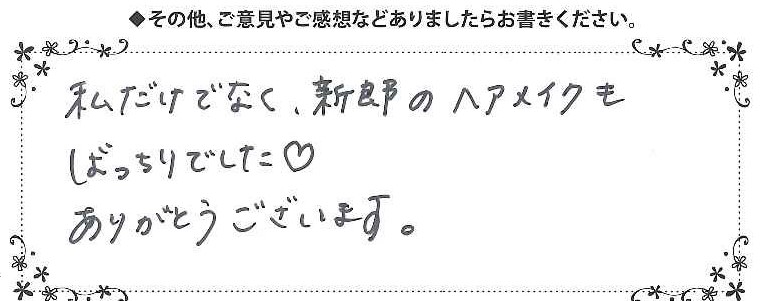 ◆その他、ご意見やご感想などありましたらお書きください。
私だけでなく、新郎のヘアメイクも
ばっちりでした♡
ありがとうございます。